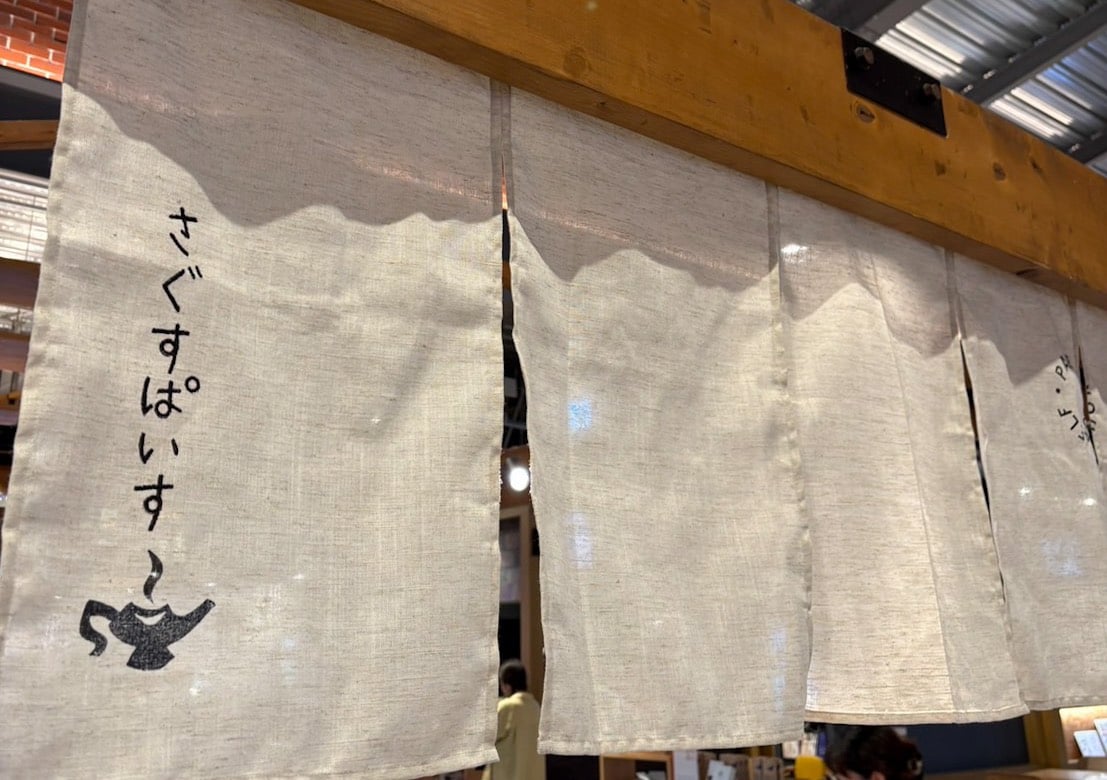 さぐすぱいす